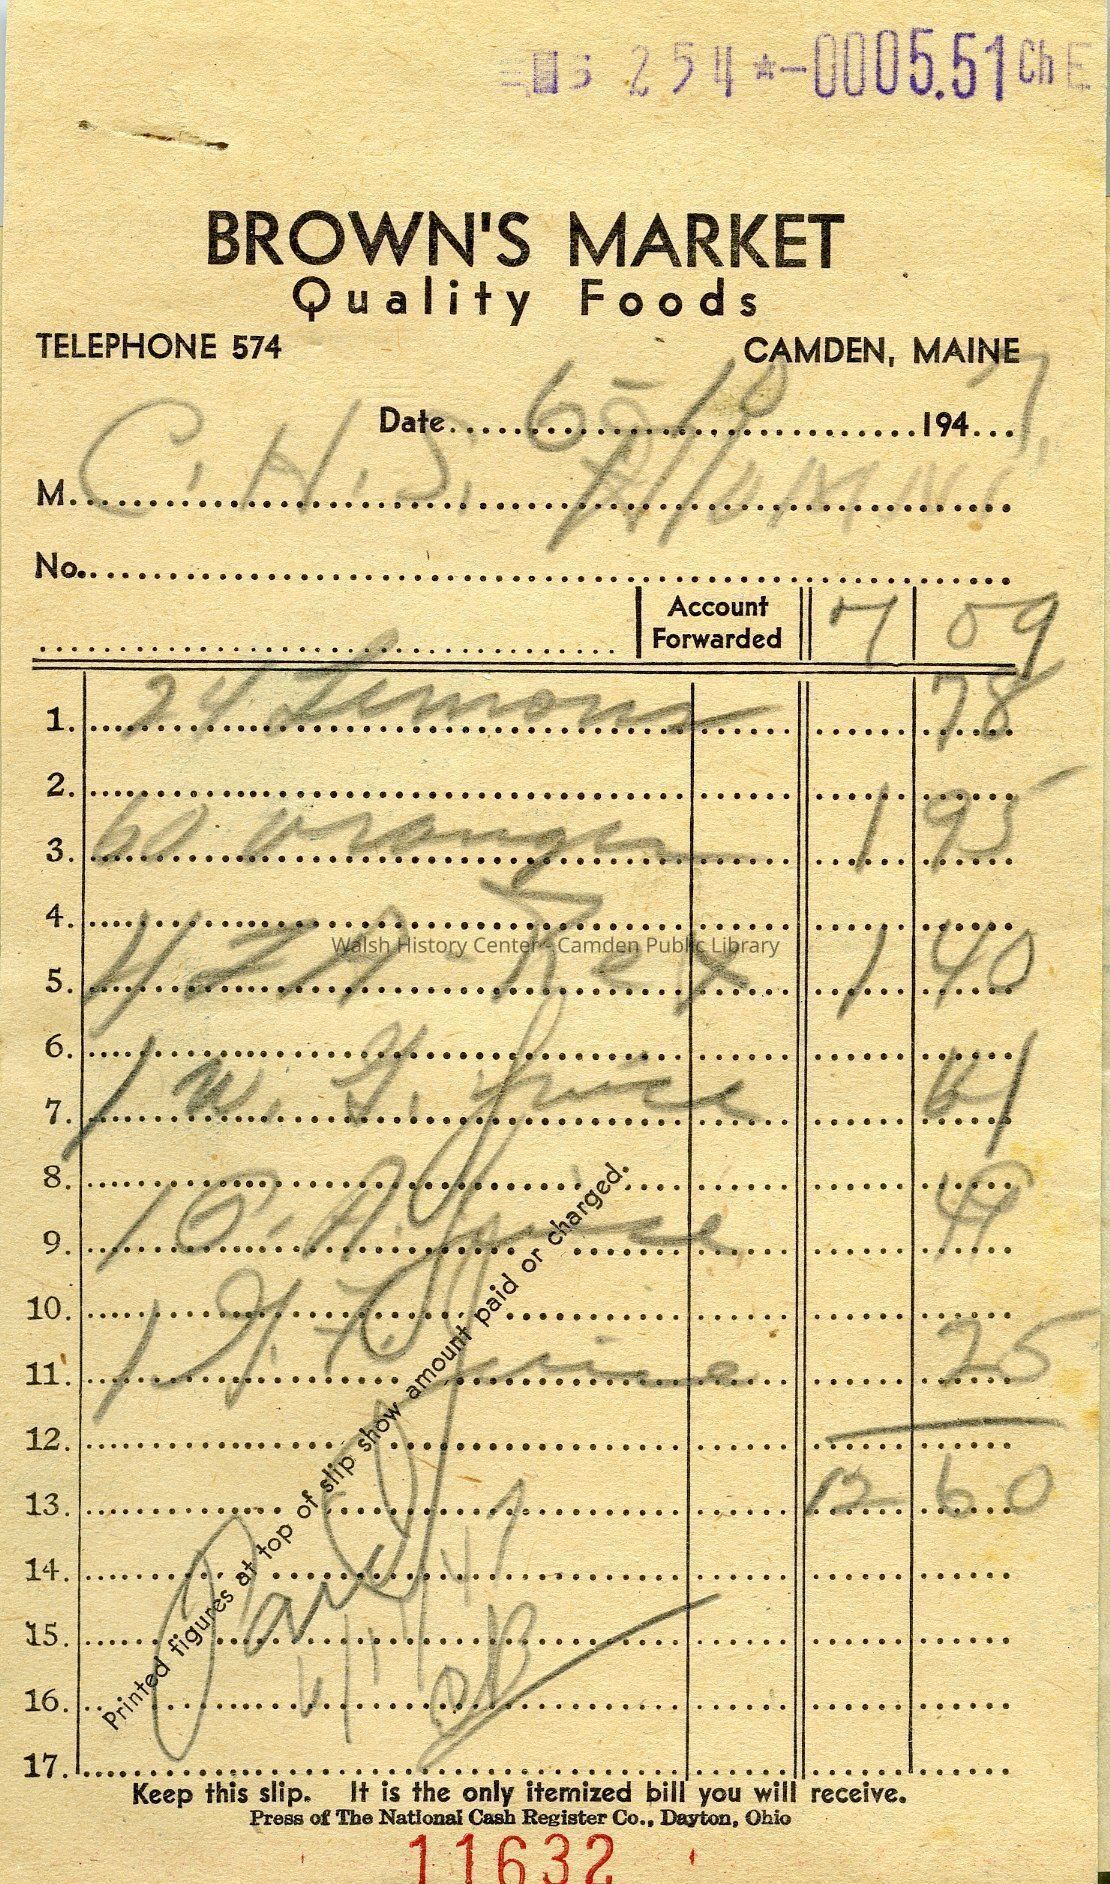 254*-0005.51 Ch E
BROWN'S MARKET
Quality Foods
TELEPHONE 574 CAMDEN, MAINE
Date 6-10 1947
M. C.H.S. Alumni
No.
Account Forwarded 7 09
1. 24 Lemons 78
2.
3. 60 Oranges 1 95
4.
5. 4 Za-Rex 1 40
6.
7. 1 W. G. Juice
8.
9. 1 P. A. Juice 49
10.
11. 1 G. F. Juice 25
12.
13. 12 60
14. Paid
15. 6/11/47
16.
17.
Printed figures at top of slip show amount paid or charged.
Walsh History Center - Camden Public Library
Keep this slip. It is the only itemized bill you will receive.
Press of The National Cash Register Co., Dayton, Ohio
11632